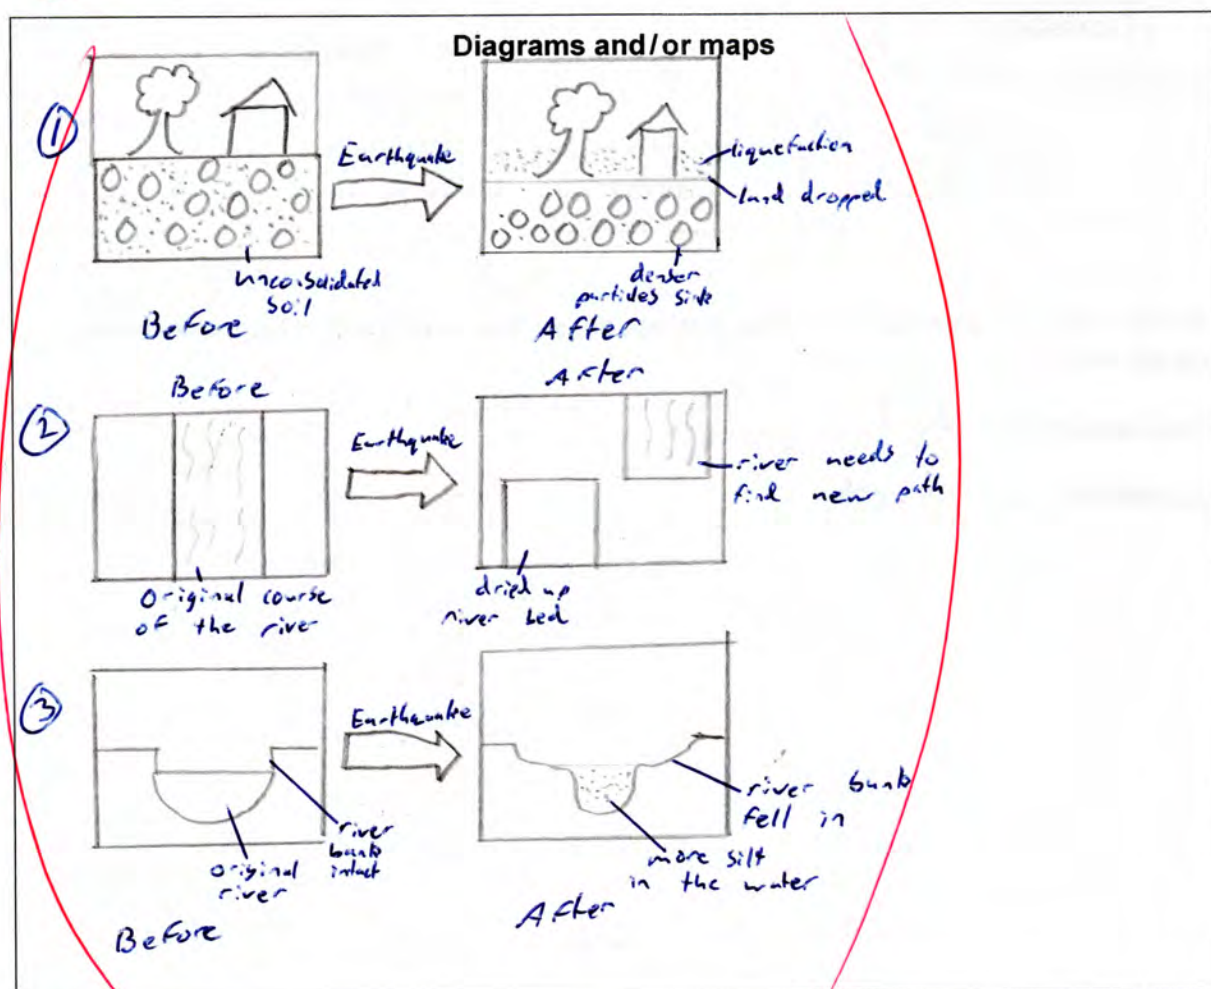 Diagrams and/or maps
1
Earthquake
liquefaction
land dropped
unconsolidated
soil
denser
particles sink
Before
After
Before
After
2
Earthquake
river needs to
find new path
original course
of the river
dried up
river bed
3
Earthquake
river bank
fell in
river
bank
intact
original
river
more silt
in the water
Before
After